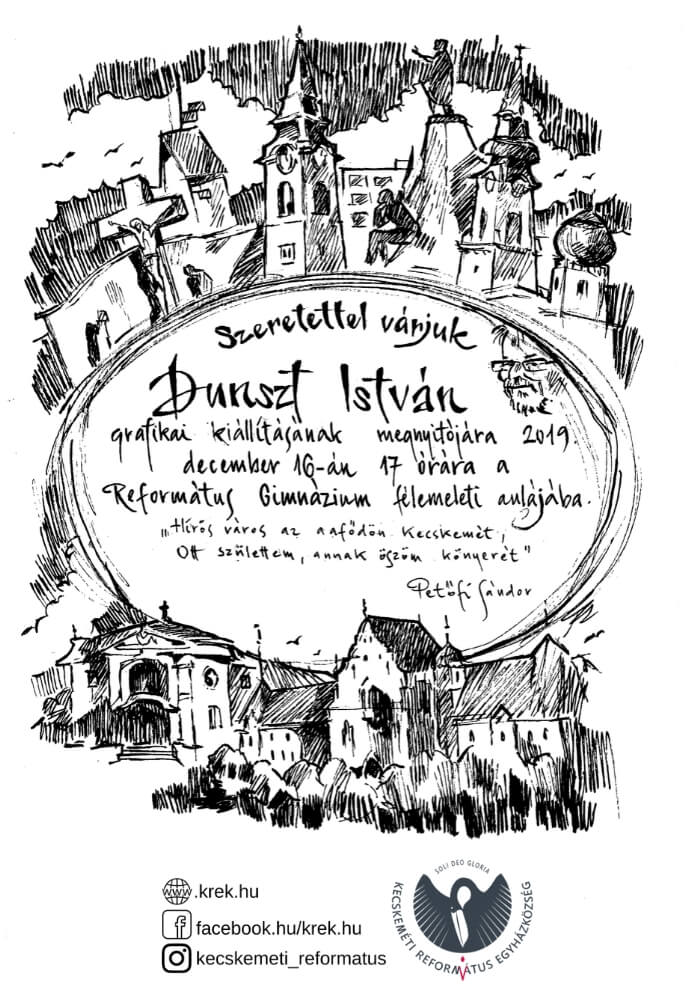 Szeretettel várjuk
Dunszt István
grafikai kiállításának megnyitójára 2019.
december 16-án 17 órára a
Református Gimnázium félemeleti aulájába.
"Hírös város az aafődön Kecskemét,
Ott születtem, annak öszöm könyerét"
Petőfi Sándor
www.krek.hu
facebook.hu/krek.hu
kecskemeti_reformatus
SOLI DEO GLORIA
KECSKEMÉTI REFORMÁTUS EGYHÁZKÖZSÉG